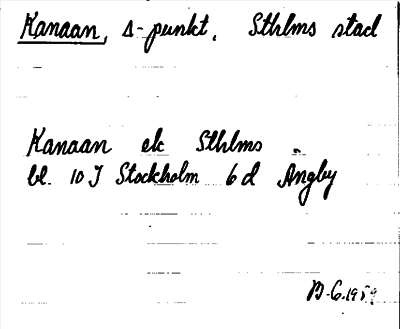 Kanaan, Δ-punkt, Sthlms stad
Kanaan ek Sthlms
bl. 10 I Stockholm 6 d Ängby
1959